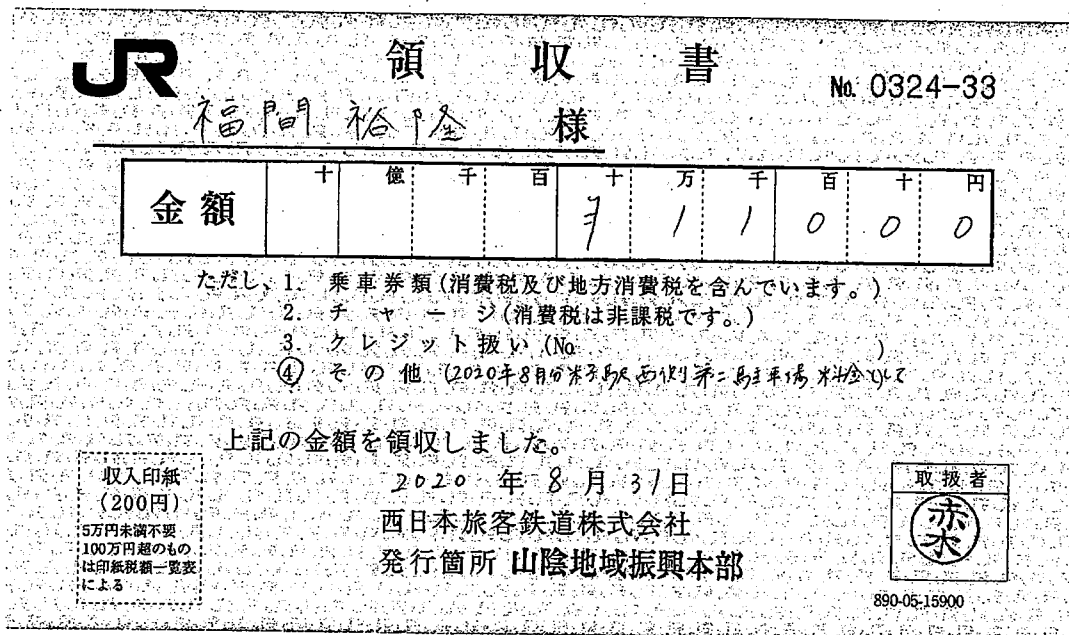 JR 領収書 No. 0324-33
福間 裕隆 様
金額 十 億 千 百 十 万 千 百 十 円
1 1 0 0 0
ただし、1. 乗車券類(消費税及び地方消費税を含んでいます。)
2. チャージ(消費税は非課税です。)
3. クレジット扱い(No. )
④ その他(2020年8月分米子駅西側第二駐車場 料金として
上記の金額を領収しました。
2020年8月31日
西日本旅客鉄道株式会社
発行箇所 山陰地域振興本部
収入印紙
(200円)
5万円未満不要
100万円超のもの
は印紙税額一覧表
による
取扱者
赤水
890-05-15900